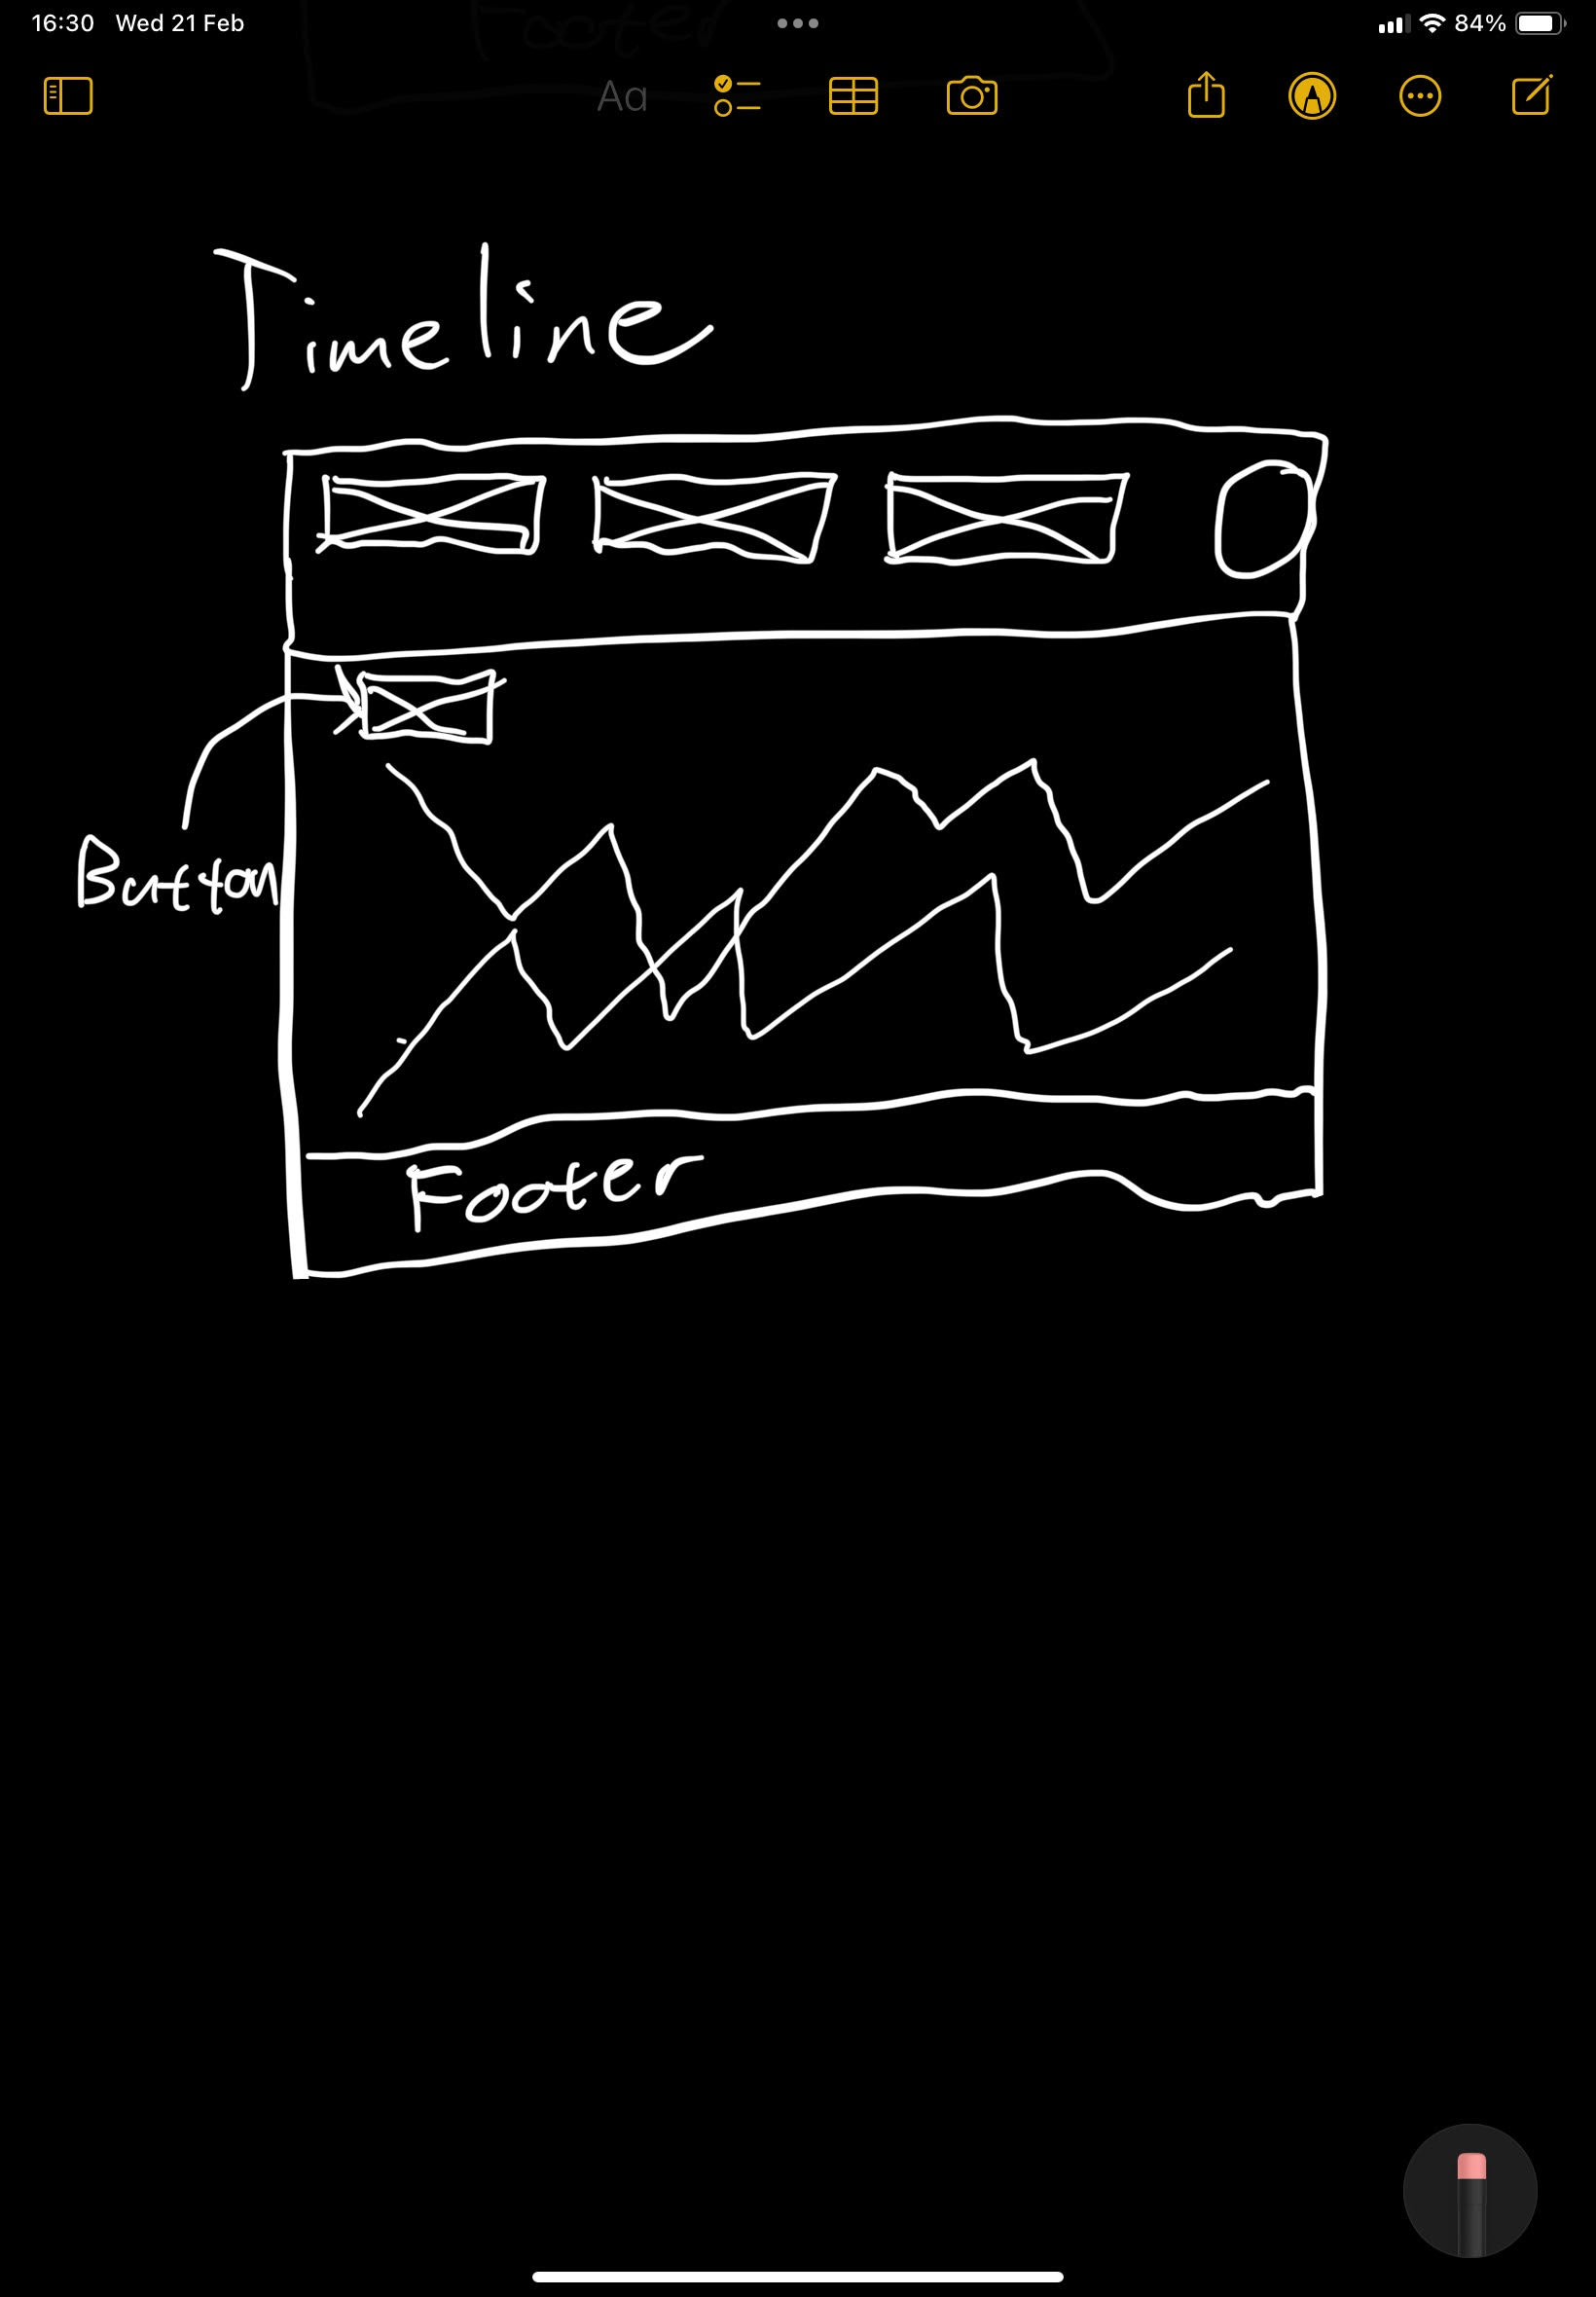 16:30 Wed 21 Feb
84%
Footer
Aa
Timeline
Button
Footer